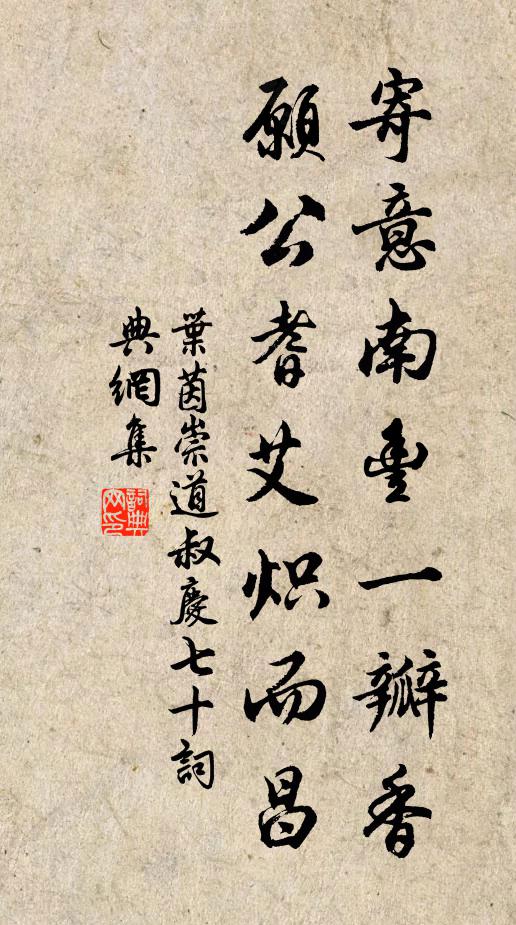 寄意南豐一瓣香
願公耆艾炽而昌
葉茵崇道叔慶七十詞
典網集
詞典网印